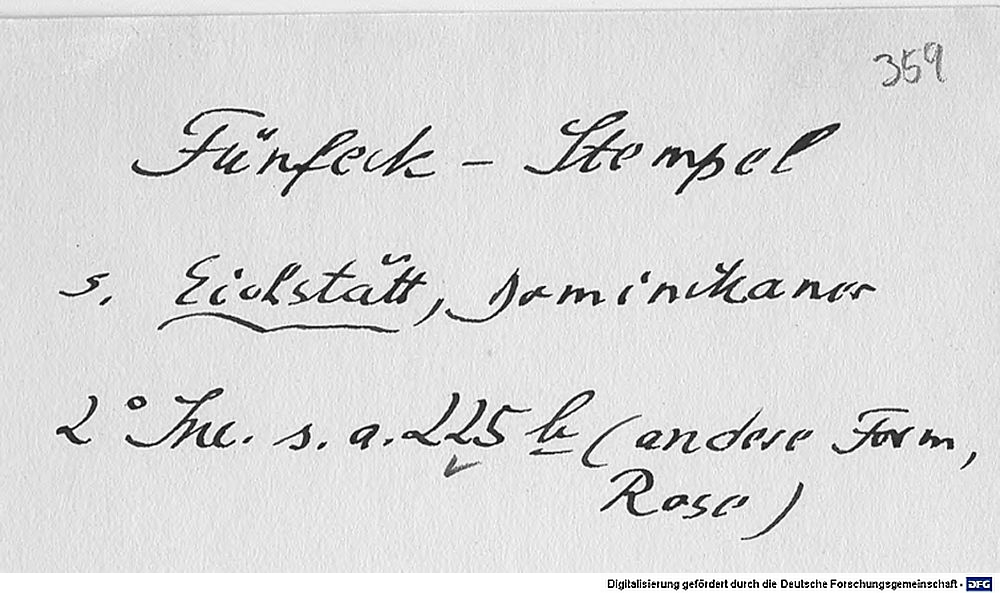 359
Fünfeck - Stempel
s. Eichstätt, Dominikaner
2° Inc. s. a. 225 b (andere Form,
Rose)
Digitalisierung gefördert durch die Deutsche Forschungsgemeinschaft - DFG